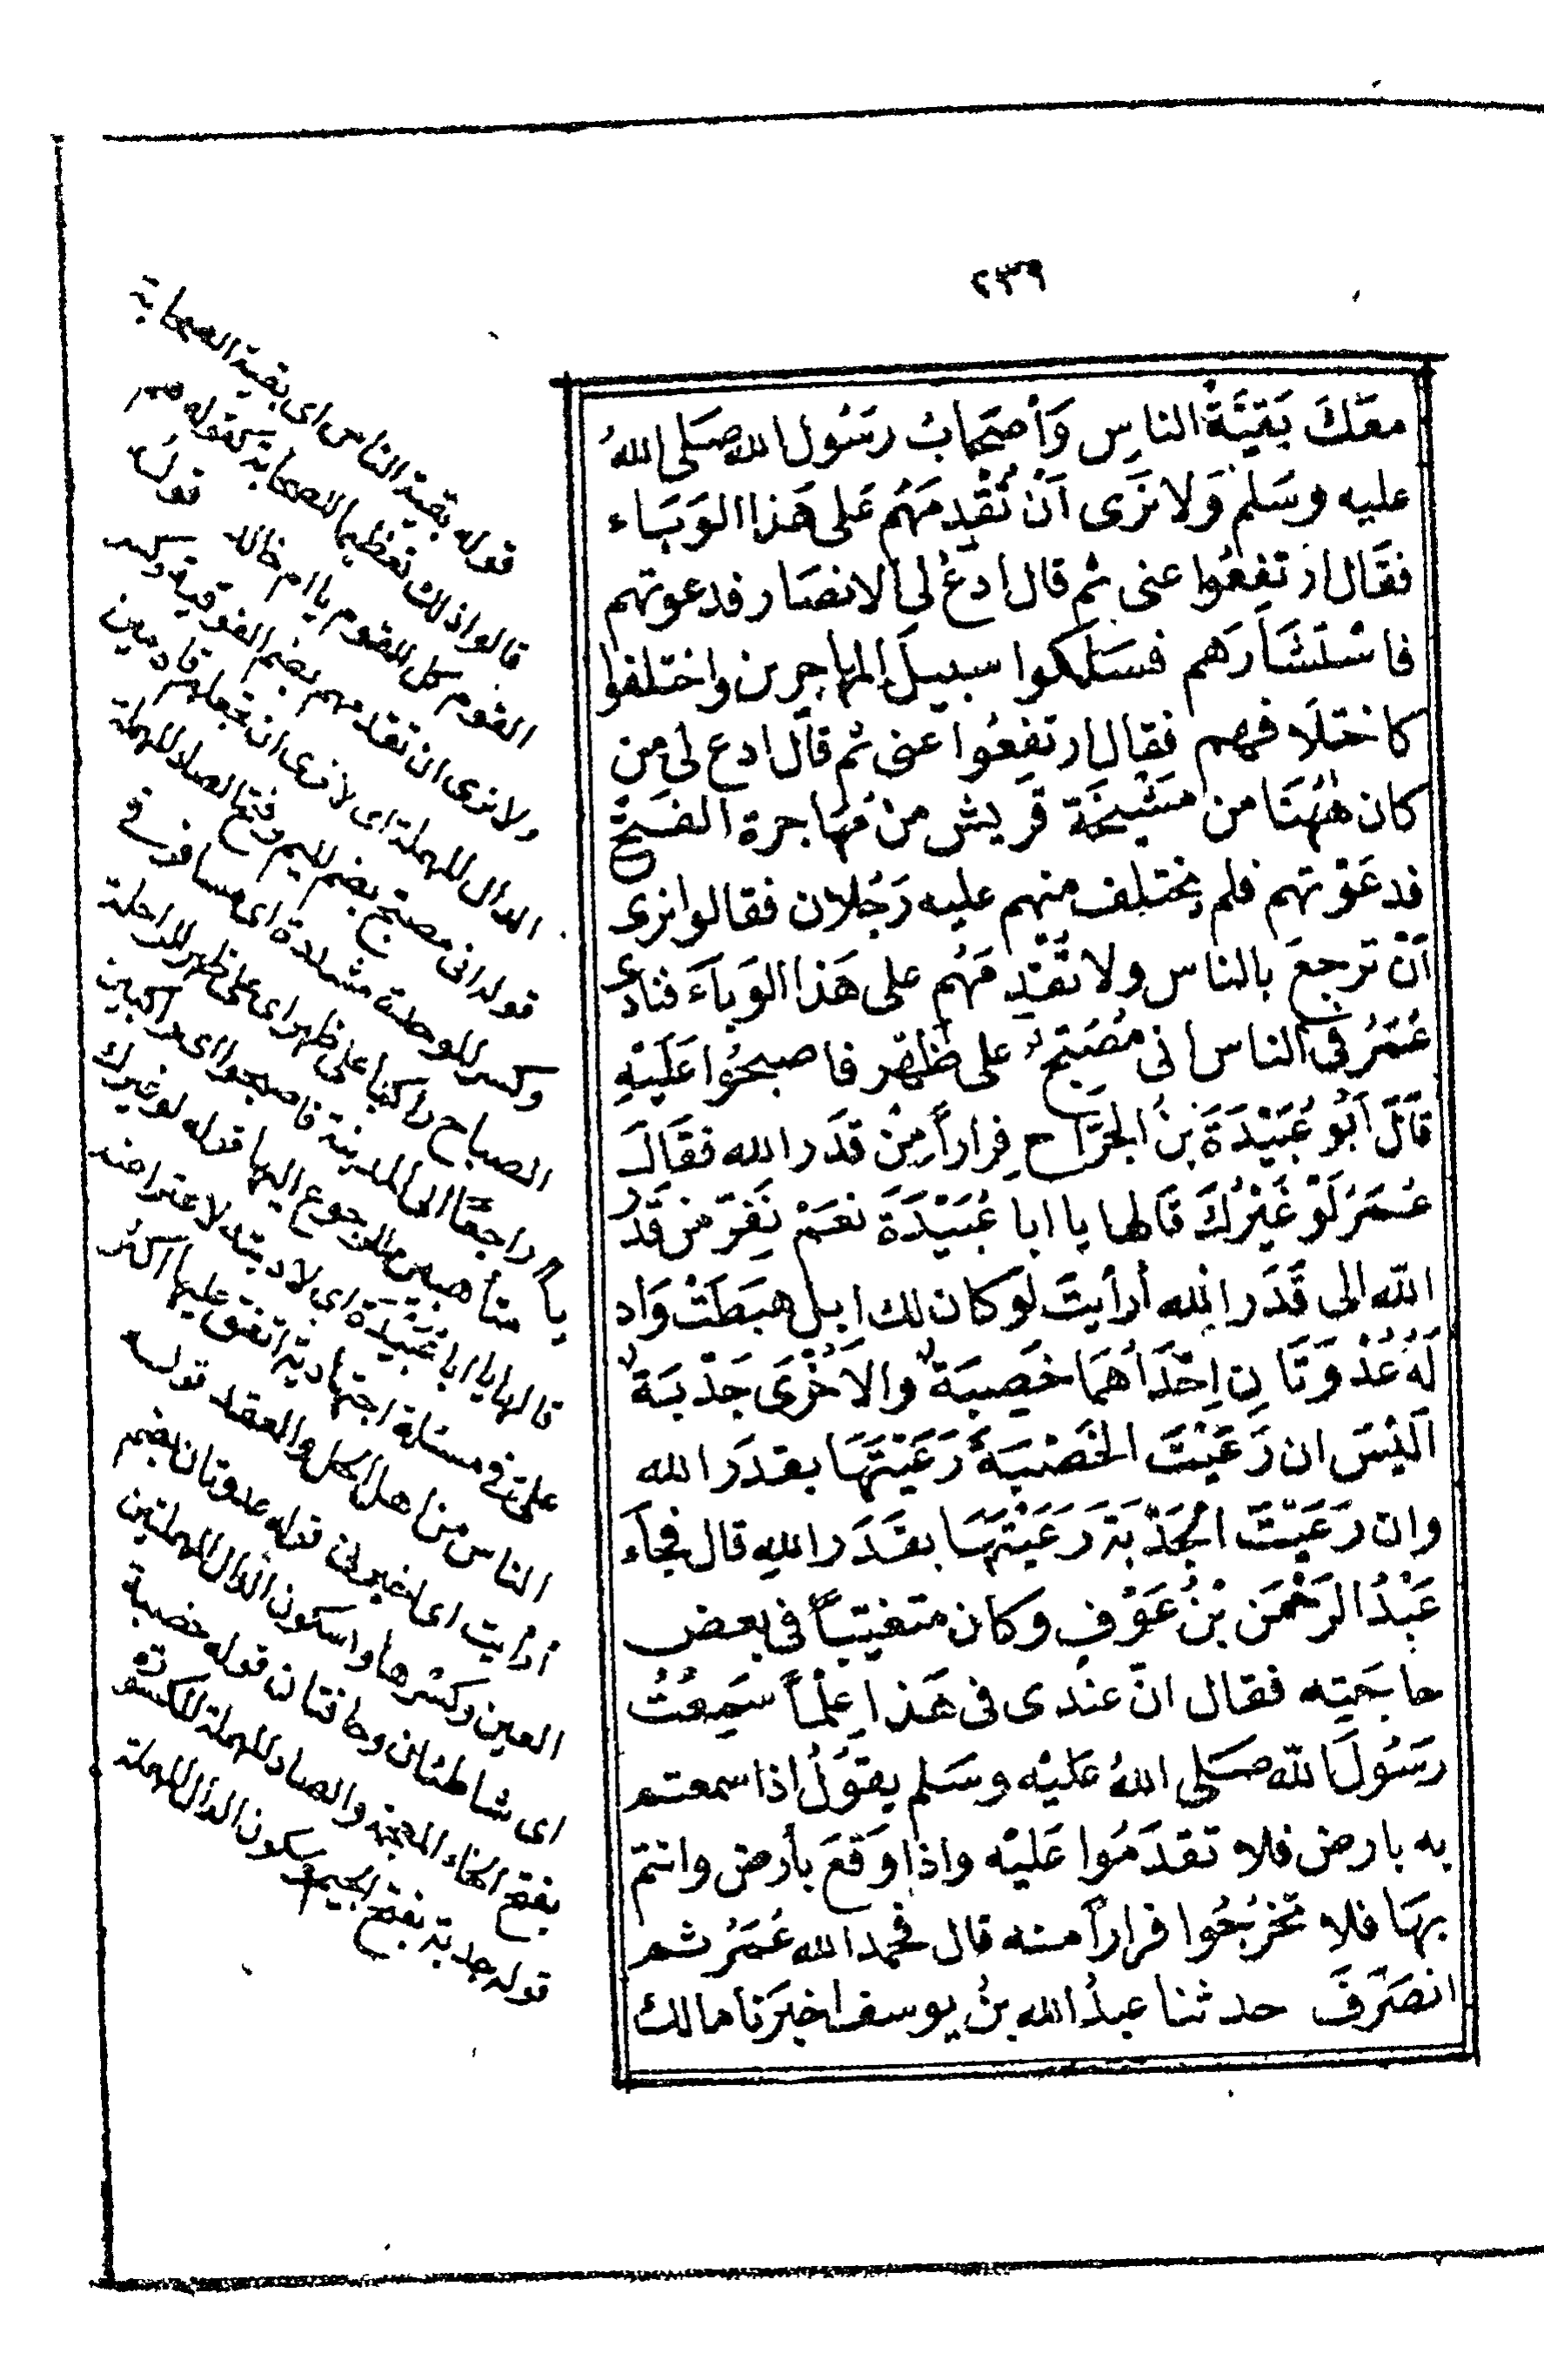 ٢٣٩
معَكَ بَقيَّةُ الناسِ وَأصحَابُ رسَول الله صَلى اللهُ
عليه وسَلم وَلا نَرَى اَنْ تُقْدِمَهُم عَلى هَذا الوَبَاء
فقَال ارتفعُوا عنى ثم قال ادعُ لى الانصَار فدعوتهم
فاسْتَشَارَهم فسَلكوا سبيلَ المهاجرين واختلفوا
كاختلَافهم فقال ارتفِعُوا عنى ثم قال ادع لى من
كان هٰهُنَا من مَشْيخَة قرَيش منْ مُهَاجرة الفَتح
فدعَوْتهم فلم يختلف منهم عليه رَجُلان فقالوا نرى
اَنْ ترجعَ بالناس ولا تُقْدِمَهُم على هَذا الوَبَاءَ فنادى
عُمَرُ فى الناس انى مُصَبّحٌ على ظَهْر فاصبحُوا عَلَيْهِ
قَالَ اَبُو عُبَيْدَةَ بنُ الجَرَّاح فِراراً مِنْ قدَر الله فقَالَ
عُمَرُ لَوْ غَيْرُكَ قَالها يا ابا عُبَيْدَةَ نعَمْ نَفِرّ من قَدَر
الله الى قَدَر الله أرأيتَ لَو كان لك ابل هبَطَتْ وَادِ
لَهُ عُدْوَتَانِ اِحْدَاهُمَا خَصِبَةٌ والاُخْرَى جَدْبَةٌ
اَلَيْسَ ان رَعَيْتَ الخَصْبَةَ رَعَيْتَهَا بقدَر الله
وان رَعَيْتَ الجَدْبَة رَعَيْتَهَا بقَدَر اللهِ قال فجَاءَ
عَبْدُ الرَحْمَن بْنُ عَوْفٍ وكان متغيّباً فى بعض
حاجَتِه فقال انّ عنْدى فى هَذا عِلْماً سَمِعْتُ
رَسُولَ الله صَلى اللهُ عَليْه وسَلم يقوُلُ اذا سمعتم
به بارض فلا تقدَمُوا عَليْه واذا وَقعَ بأرض وانتم
بهَا فلا تخرُجُوا فراراً منه قال فحمد الله عُمَرُ ثم
انصَرَفَ حدثنا عبدُ الله بنُ يوسف اخبَرَنا مالك
قوله بقية الناس اى بقية الصحابة
قالوا ذلك تعظيما للصحابة كقوله هم
القوم كل القوم يا ام خالد قوله
ولا نرى ان تقدمهم بضم الفوقية وكسر
الدال المهملة اى لا نرى ان تجعلهم قادمين
قوله انى مصبح بضم الميم وفتح الصاد المهملة
وكسر الموحدة مشددة اى مسافر فى
الصباح راكبا على ظهر اى على ظهر الراحلة
راجعًا الى المدينة فاصبحوا اى راكبين
متأهبين للرجوع اليها قوله لو غيرك
قالها يا ابا عُبَيْدَة اى لادبته لاعتراضه
علىّ فى مسئلة اجتهادية اتفق عليها اكثر
الناس من اهل الحل والعقد قوله
أرأيت اى اخبرنى قوله عدوتان بضم
العين وكسْرها واسكون الدال المهملتين
اى شاطئان وحافتان قوله خصبة
بفتح الخاء المعجمة والصاد المهملة المكسورة
قوله جدبة بفتح الجيم وسكون الدال المهملة